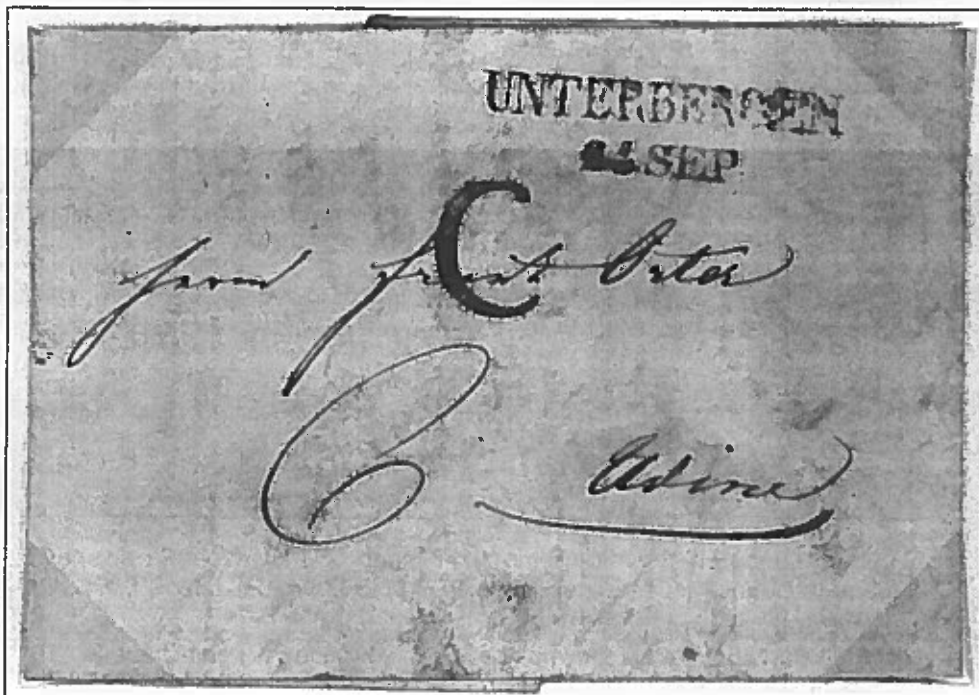 UNTERBERGEN
SEP
C
Herrn Franz Orter
Udine